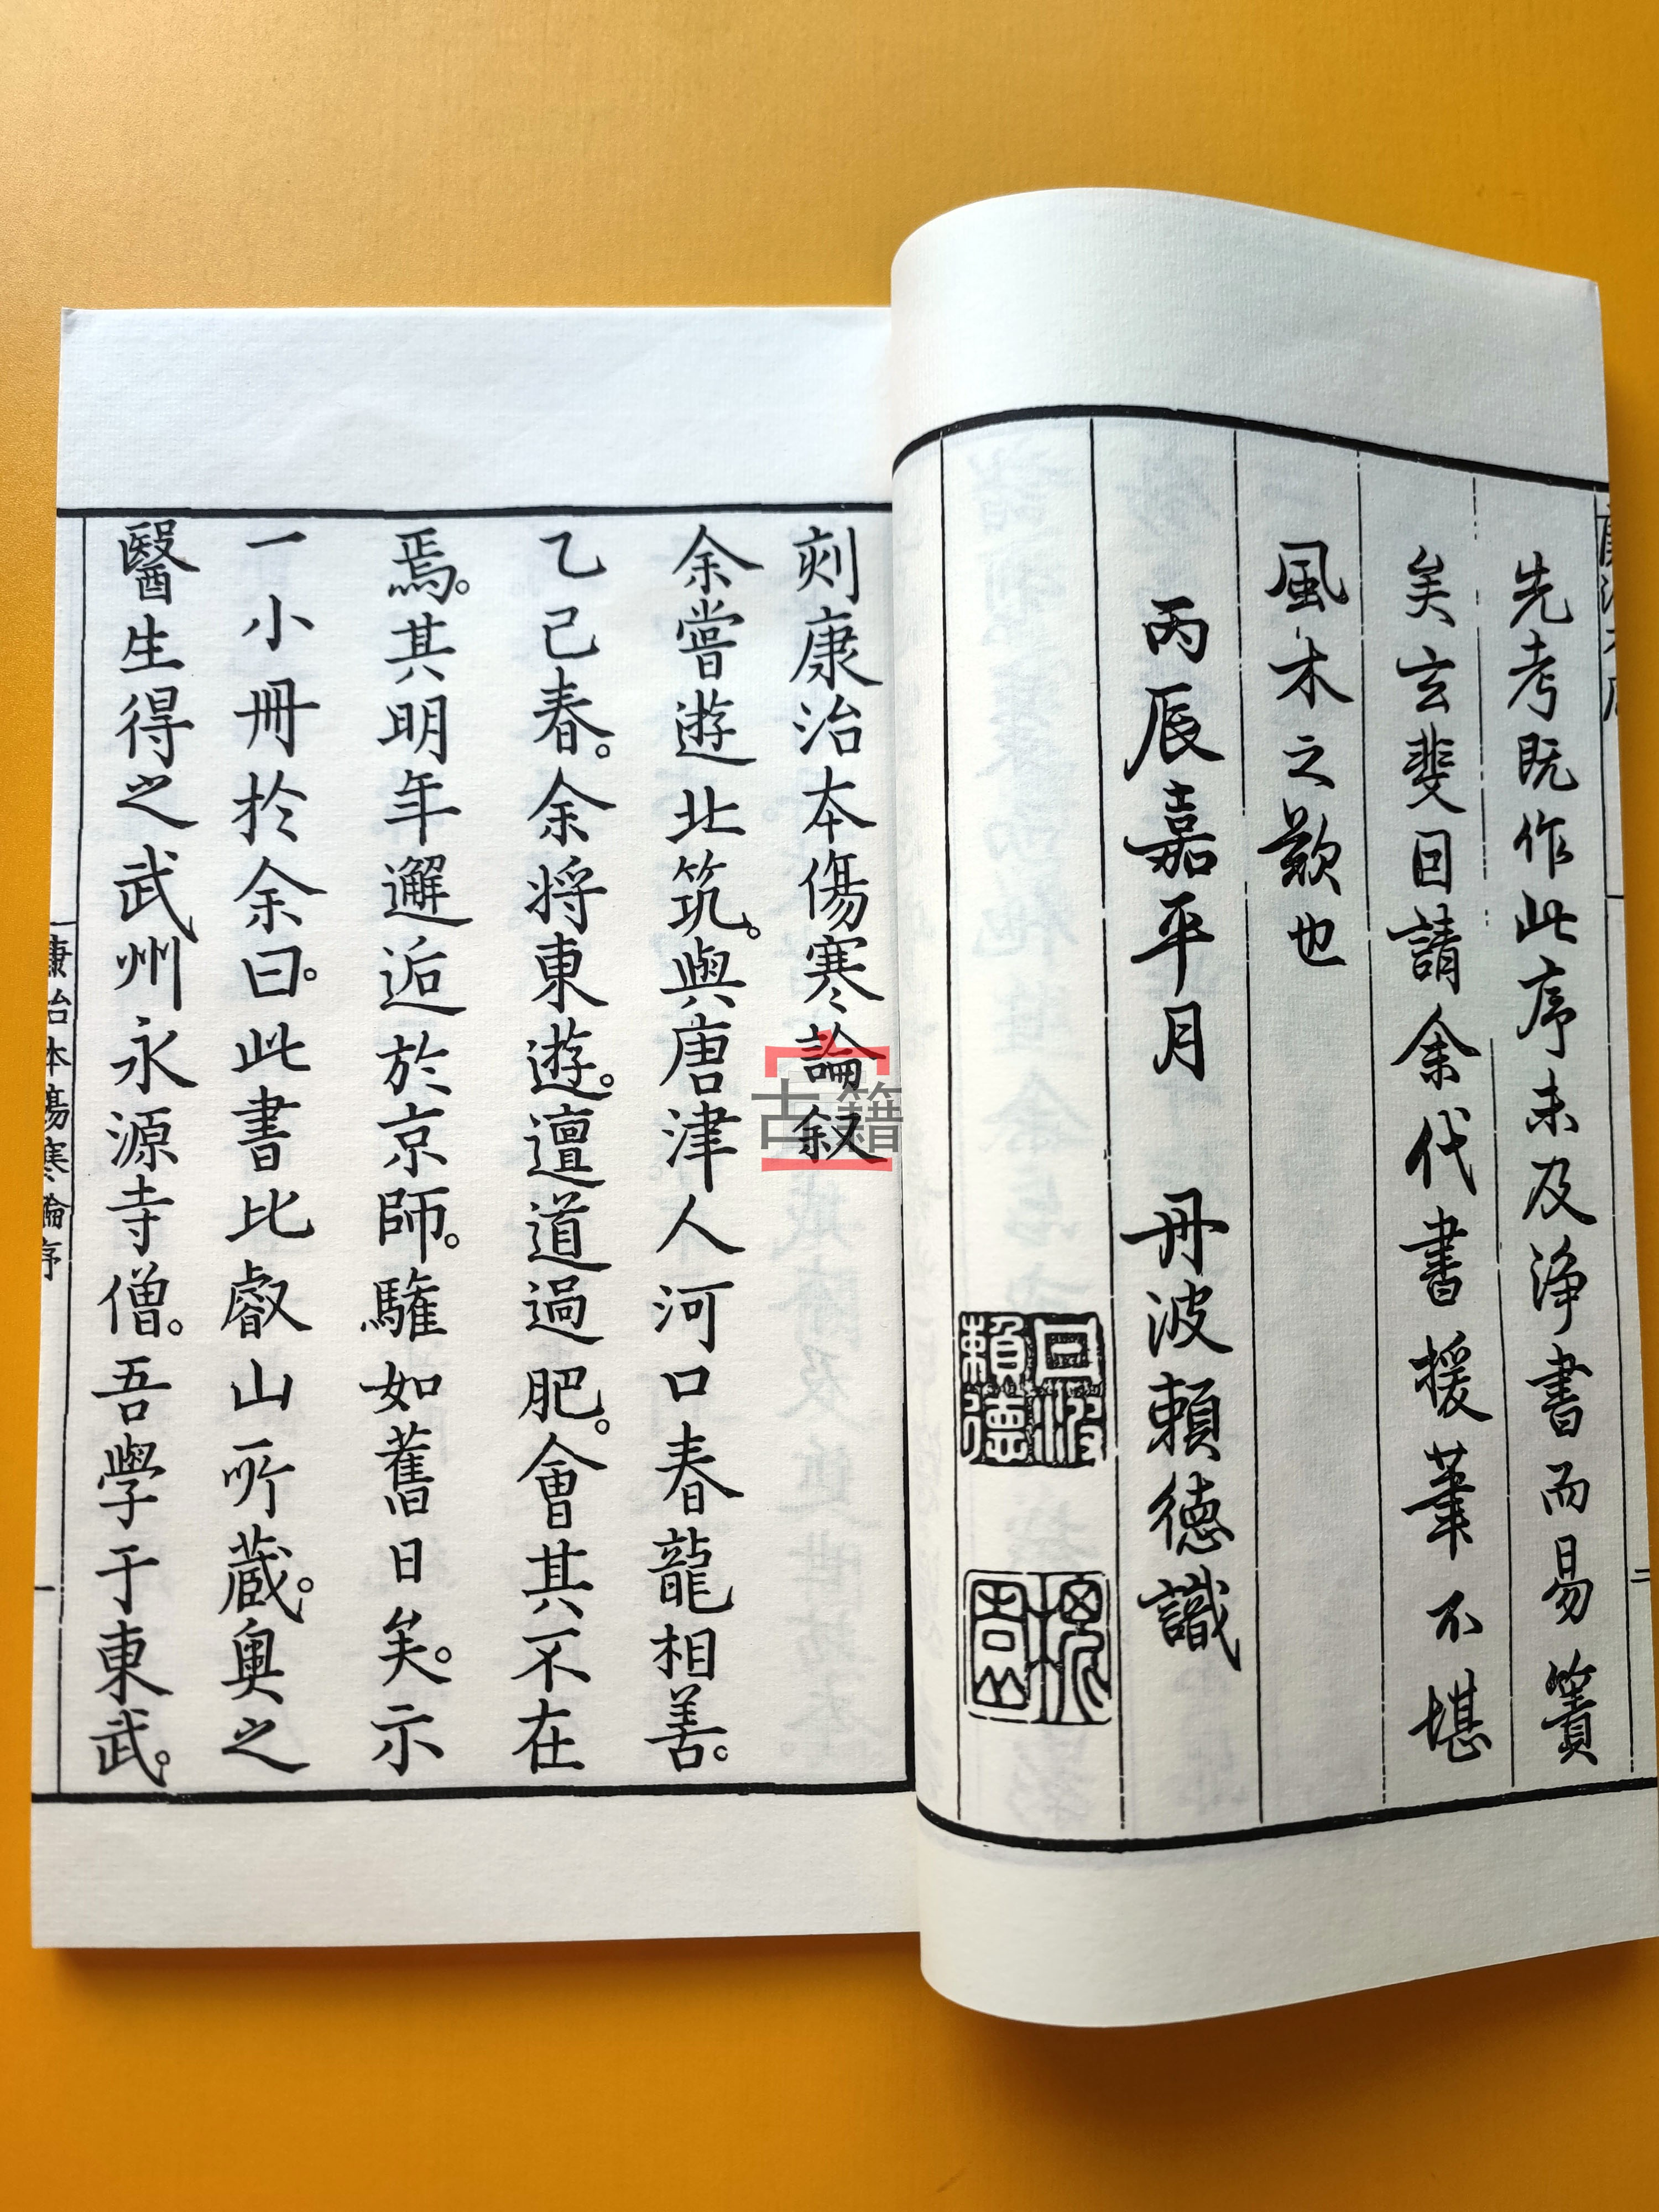 先考既作此序未及浄書而易簀
矣玄斐因請余代書援筆不堪
風木之歎也
丙辰嘉平月 丹波頼徳識
丹波頼徳
刻康治本傷寒論叙
余嘗遊北筑。與唐津人河口春龍相善。
乙巳春。余將東遊。邅道過肥。會其不在
焉。其明年邂逅於京師。驩如舊日矣。示
一小冊於余曰。此書比叡山所蔵。奥之
醫生得之武州永源寺僧。吾學于東武。
康治本傷寒論序
一
二
古籍